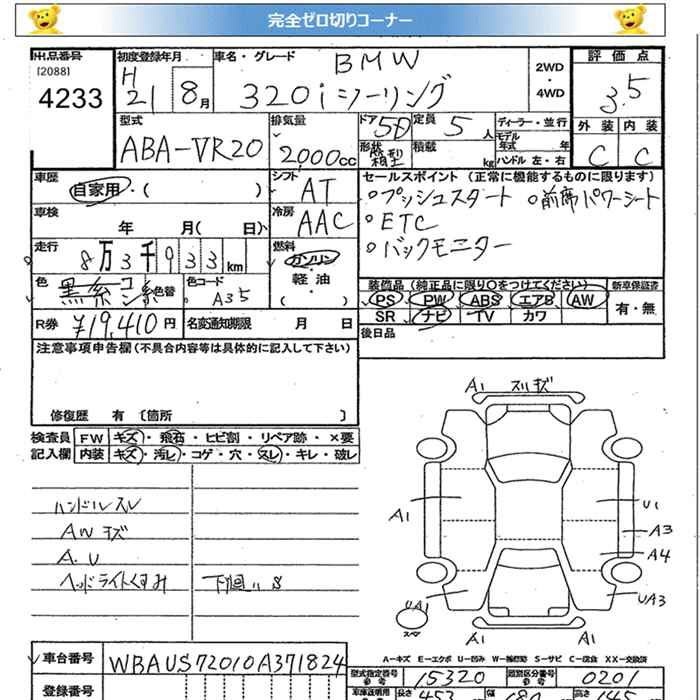 完全ゼロ切りコーナー
出品番号
[2088]
4233
初度登録年月
H21 8月
車名・グレード
BMW
320i ツーリング
2WD
・
4WD
評価点
3.5
外装 内装
C C
型式
ABA-VR20
排気量
2000cc
ドア 5D
形状 箱型
定員 5人
積載 kg
ディーラー・並行
モデル年式 年
ハンドル 左・右
車歴
自家用・( )
シフト
AT
車検
年 月( 日)
冷房
AAC
走行
8万3千933km
燃料
ガソリン
軽油
( )
色
色替
色コード
A35
R券 ¥19,410円
名変通知期限 月 日
セールスポイント (正常に機能するものに限ります)
○プッシュスタート ○前席パワーシート
○ETC
○バックモニター
装備品(純正品に限り○をつけてください)
PS PW ABS エアB AW
SR ナビ TV カワ
新車保証書
有・無
後日品
注意事項申告欄(不具合内容等は具体的に記入して下さい)
修復歴 有 〔箇所 〕
検査員 FW キズ・飛石・ヒビ割・リペア跡・×要
記入欄 内装 キズ・汚レ・コゲ・穴・スレ・キレ・破レ
ハンドルスレ
AWキズ
A.U
ヘッドライトくすみ
下廻りS
A1 スリキズ
A1
U1
A3
A4
UA1
UA3
スペア
A1
A1
A-キズ E-エクボ U-凹み W-補修跡 S-サビ C-腐食 XX-交換済
車台番号
WBAUS72010A371824
登録番号
型式指定番号
参考
15320
類別区分番号
参考
0201
長さ
幅
高さ